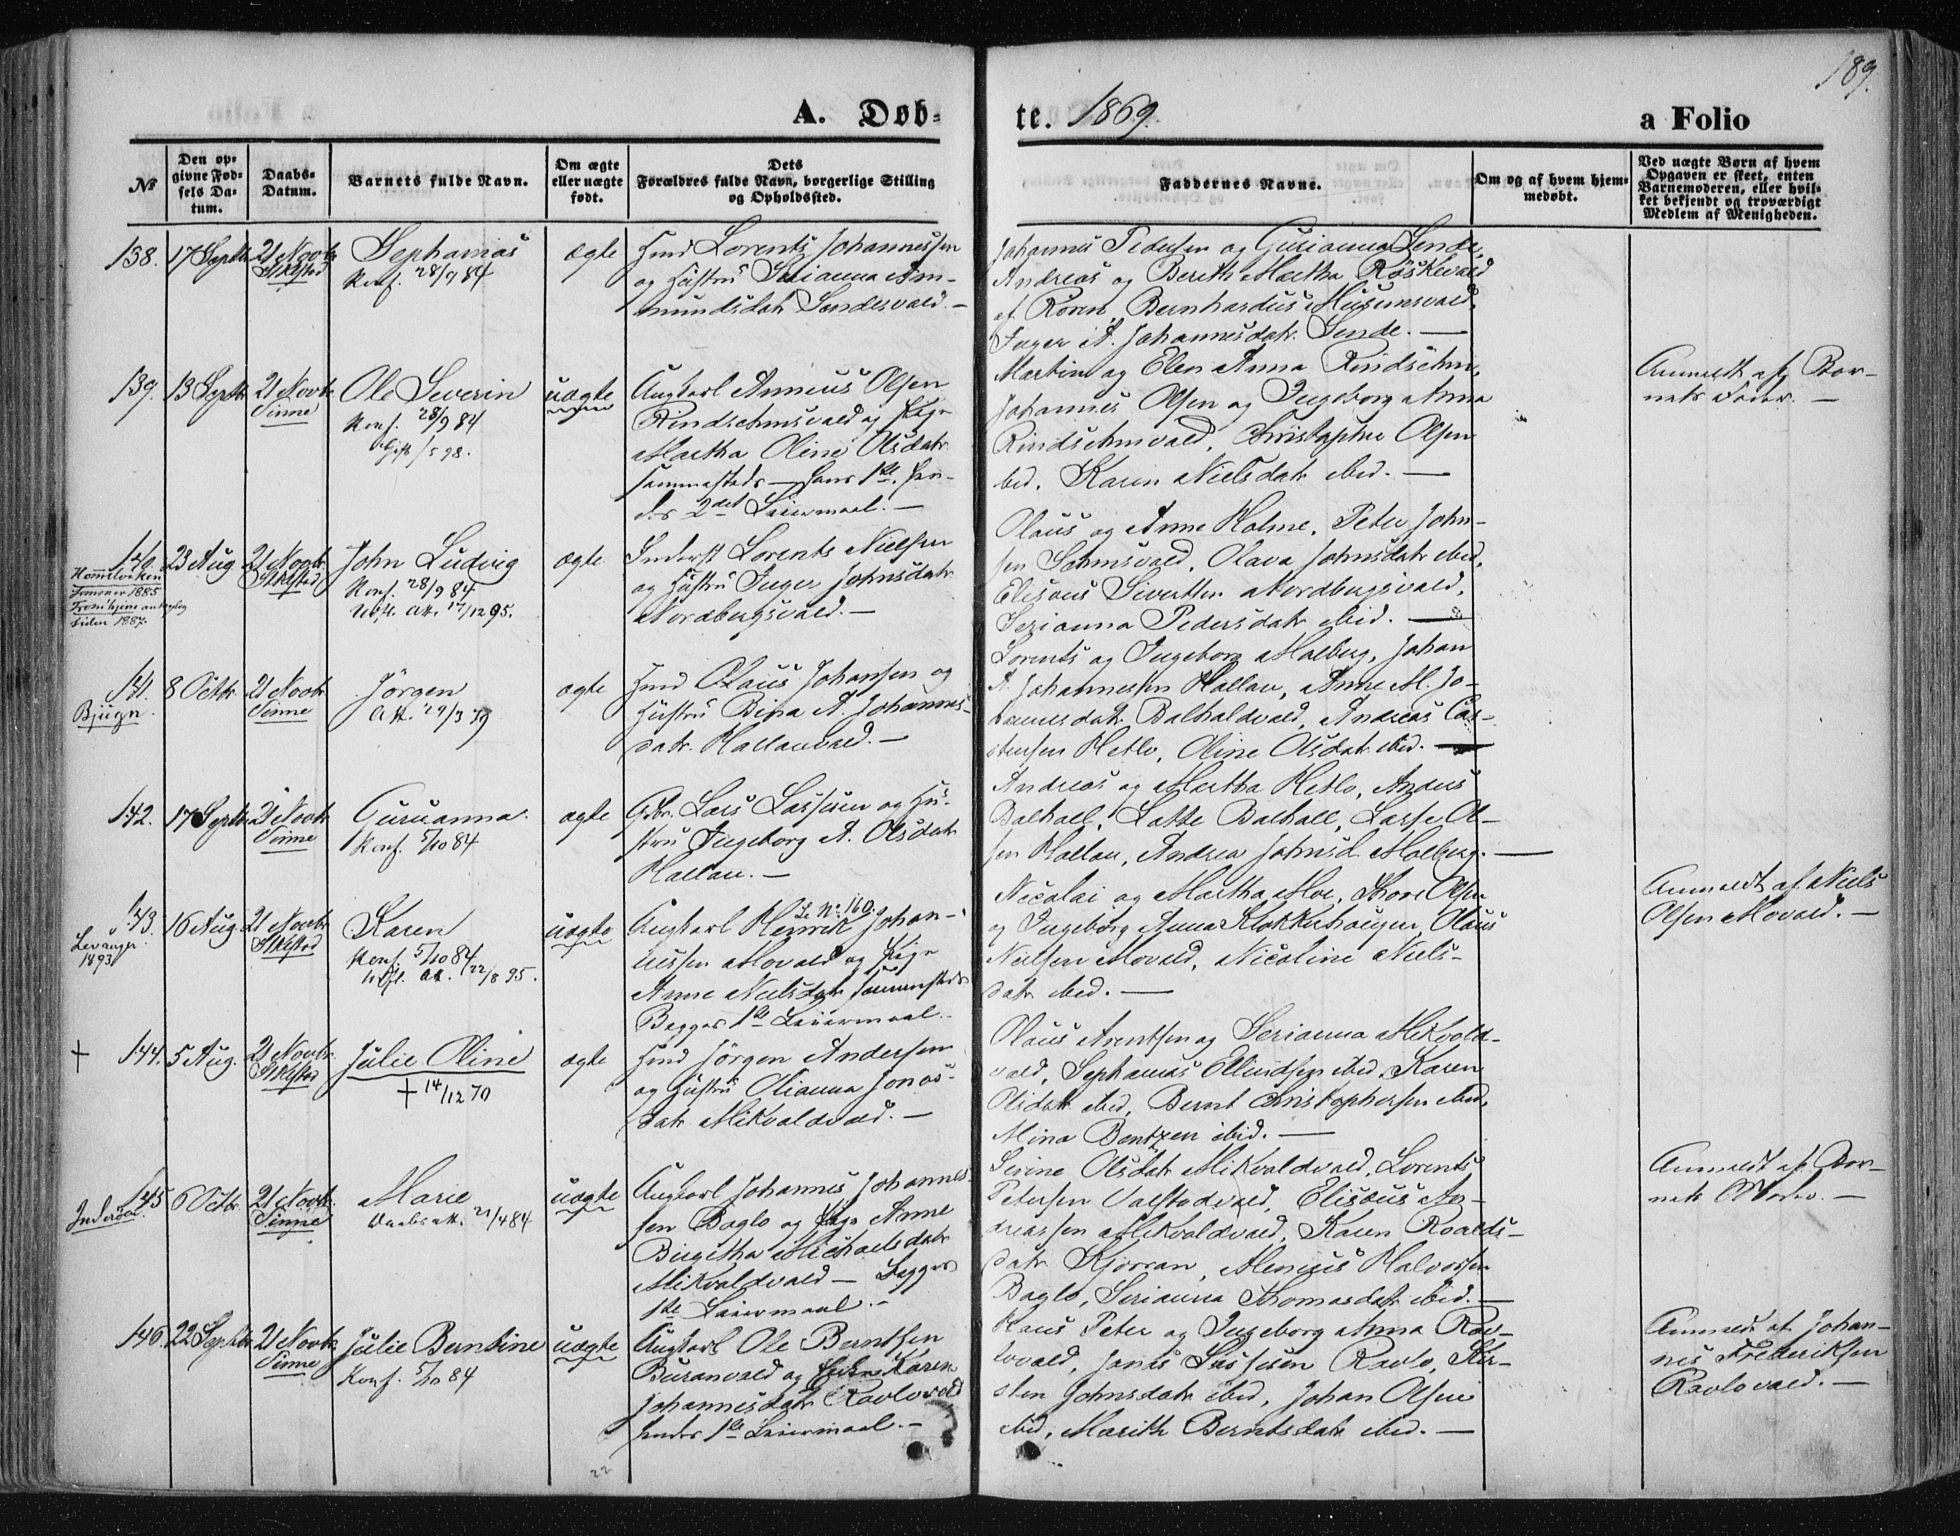 189.
A. Døb-
te. 1869.
a Folio
No
Den op-
givne Fød-
sels Da-
tum.
Daabs-
Datum.
Barnets fulde Navn.
Om ægte
eller uægte
født.
Dets
Forældres fulde Navn, borgerlige Stilling
og Opholdssted.
Faddernes Navne.
Om og af hvem hjem-
medøbt.
Ved uægte Børn af hvem
Opgaven er skeet, enten
Barnemoderen, eller hvil-
ket bekjendt og troværdigt
Medlem af Menigheden.
138. 17 Septbr. 21 Novbr.
Stiklstad
Sephanias
Konf. 28/9 84
ægte
Hmd Lorents Johannessen
og Hustru Serianna Am-
mundsdatr Sendesvald. —
Johannes Pedersen og Gurianna Sende,
Andreas og Bereth Martha Røskevald
af Røren, Bernhardus Musumsvald,
Inger A. Johannesdatr Sende. —
139. 13 Septbr 21 Novbr.
Vinne
Ole Severin
Konf. 28/9 84
uægte
Ungkarl Anneus Olsen
Rindsehmsvald og Pige
Martha Oline Olsdatr
sammesteds — Hans 1ste, Hen-
des 2det Leiermaal. —
Martin og Elen Anna Rindsehm,
Johannes Olsen og Ingeborg Anna
Rindsehmvald, Christopher Olsen
ibid, Karen Nielsdatr ibid. —
Anmeldt af Bar-
nets Fader. —
140. 23 Aug. 21 Novbr.
Stiklstad
Hommelviken
Sommer 1885
siden 1887.
John Ludvig
Konf. 28/9 84
Udfl. Att. 17/12 95.
ægte
Inderst Lorents Nielsen
og Hustru Inger Johnsdatr
Nordbergsvald. —
Olaus og Anne Holme, Peter John-
sen Sehmsvald, Olava Johnsdatr ibid,
Elisæus Sivertsen Nordbergsvald,
Serianna Pedersdatr ibid. —
141. 8 Octbr. 21 Novbr.
Vinne
Bjugn.
Jörgen
Att. 29/3 79
ægte
Hmd Olaus Johansen og
Hustru Bina A. Johannes-
datr. Hallanvald. —
Lorents og Ingeborg Molberg, Johan
A. Johannessen Hallan, Anne M. Jo-
hannesdatr Balhaldvald, Andreas Car-
stensen Hetlo, Oline Olsdatr ibid. —
142. 17 Septbr. 21 Novbr.
Vinne
Guruanna.
Konf. 5/10 84
ægte
Gbr. Lars Larssen og Hu-
stru Ingeborg A. Olsdatr
Hallan. —
Andreas og Martha Hetlo, Anders
Balhall, Lasse Ol-
sen Hallan, Andrea Johnsd. Molberg. —
143. 16 Aug. 21 Novbr.
Stiklstad
Levanger
1893
Karen
Konf. 5/10 84
Udfl. Att. 22/8 95.
uægte
Se No 160.
Ungkarl Henrik Johan-
nessen Movald og Pige
Anne Nielsdatr sammesteds
Begges 1ste Leiermaal. —
Nicolai og Martha Moe, Tore Olsen
og Ingeborg Anna Klokkerhaugen, Olaus
Nielsen Movald, Nicoline Niels-
datr ibid. —
Anmeldt af Niels
Olsen Movald. —
+ 144. 5 Aug. 21 Novbr.
Stiklstad
Julie Oline
+ 14/12 70
ægte
Hmd Jörgen Andersen
og Hustru Olianna Jonas-
datr Mikvoldvald. —
Olaus Arentsen og Serianna Mikvold-
vald, Sephanias Ellindsen ibid, Karen
Olsdatr ibid, Bernt Christophersen ibid,
Mina Bentzen ibid. —
145 6 Octbr. 21 Novbr.
Vinne
Inderøen.
Marie
Daabsatt. 21/4 84
uægte
Ungkarl Johannes Johannes-
sen Baglo og Pige Anne
Birgitha Michaelsdatr
Mikvoldvald — Begges
1ste Leiermaal. —
Serine Olsdatr Mikvoldvald, Lorents
Petersen Valstadvald, Elisæus An-
dreassen Mikvoldvald, Karen Roalds-
datr Kjörran, Menius Halvorsen
Baglo, Serianna Thomasdatr ibid. —
Anmeldt af Bar-
nets Moder. —
146. 22 Septbr 21 Novbr.
Vinne
Julie Berntine
Konf. 5/10 84
uægte
Ungkarl Ole Berntsen
Buranvald og Enke Karen
Johannesdatr Ravlovald
Hendes 1ste Leiermaal. —
Hans Peter og Ingeborg Anna Rav-
lovald, Jonas Larssen Ravlo, Kir-
sten Johnsdatr ibid, Johan Olsen
ibid, Marith Berntsdatr ibid. —
Anmeldt af Johan-
nes Frederiksen
Ravlovald. —
22